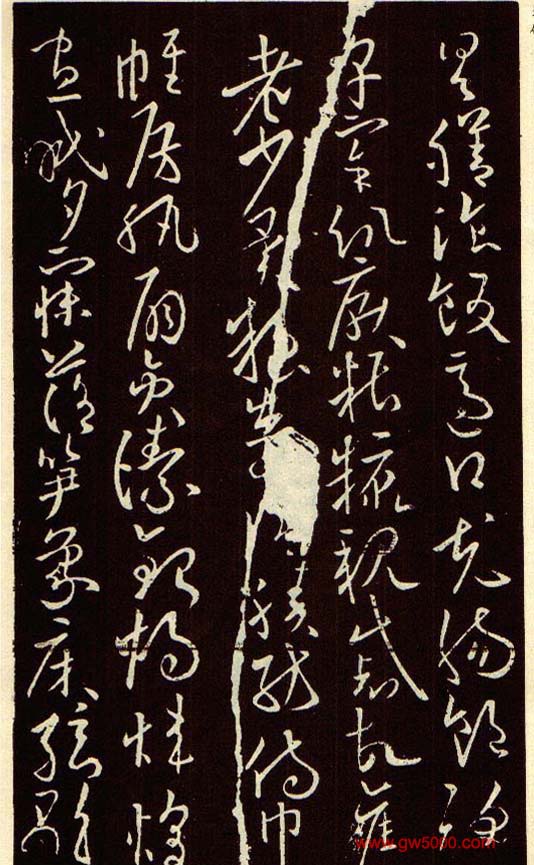 具膳飡飯適口充腸飽飫
烹宰飢厭糟糠親戚故舊
老少異糧妾績紡侍巾
帷房紈扇圓潔銀燭煒煌
晝眠夕寐藍笋象床弦歌
www.gw5000.com